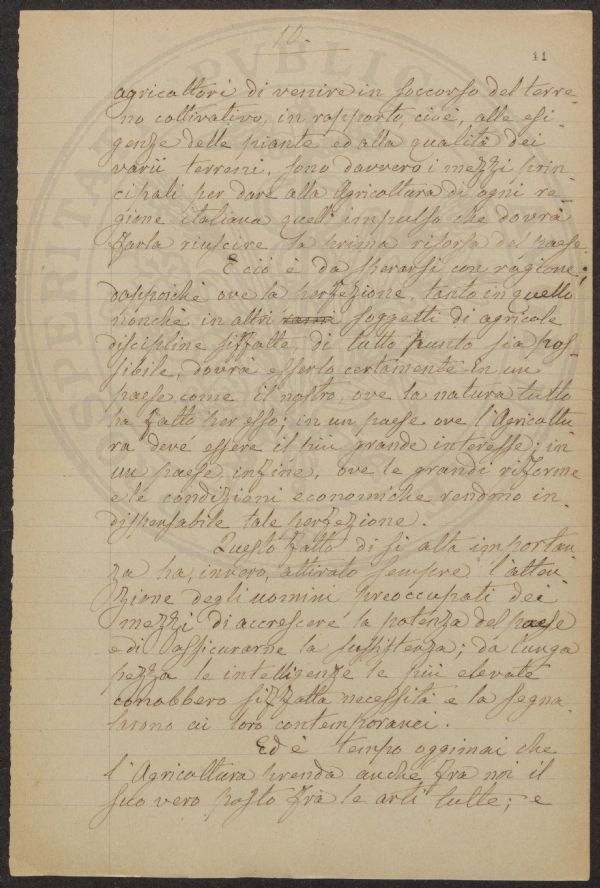 10.
11
agricoltori di venire in soccorso del terre-
no coltivativo, in rapporto, cioè, alle esi-
genze delle piante ed alla qualità dei
varii terreni, sono davvero i mezzi prin-
cipali per dare alla Agricoltura di ogni re-
gione italiana quell'impulso che dovrà
farla riuscire la prima risorsa del paese.
E ciò è da sperarsi con ragione;
dappoichè ove la perfezione, tanto in quello
nonchè in altri soggetti di agricole
discipline siffatte di tutto punto sia pos-
sibile, dovrà esserlo certamente in un
paese come il nostro, ove la natura tutto
ha fatto per esso; in un paese ove l'Agricoltu-
ra deve essere il più grande interesse; in
un paese infine, ove le grandi riforme
e le condizioni economiche rendono in-
dispensabile tale perfezione.
Questo fatto di sì alta importan-
za ha, invero, attirato sempre l'atten-
zione degli uomini preoccupati dei
mezzi di accrescere la potenza del paese
e di assicurarne la sussistenza; da lunga
pezza le intelligenze le più elevate
conobbero siffatta necessità e la segna-
larono ai loro contemporanei.
Ed è tempo oggimai che
l'Agricoltura prenda anche fra noi il
suo vero posto fra le arti tutte; e